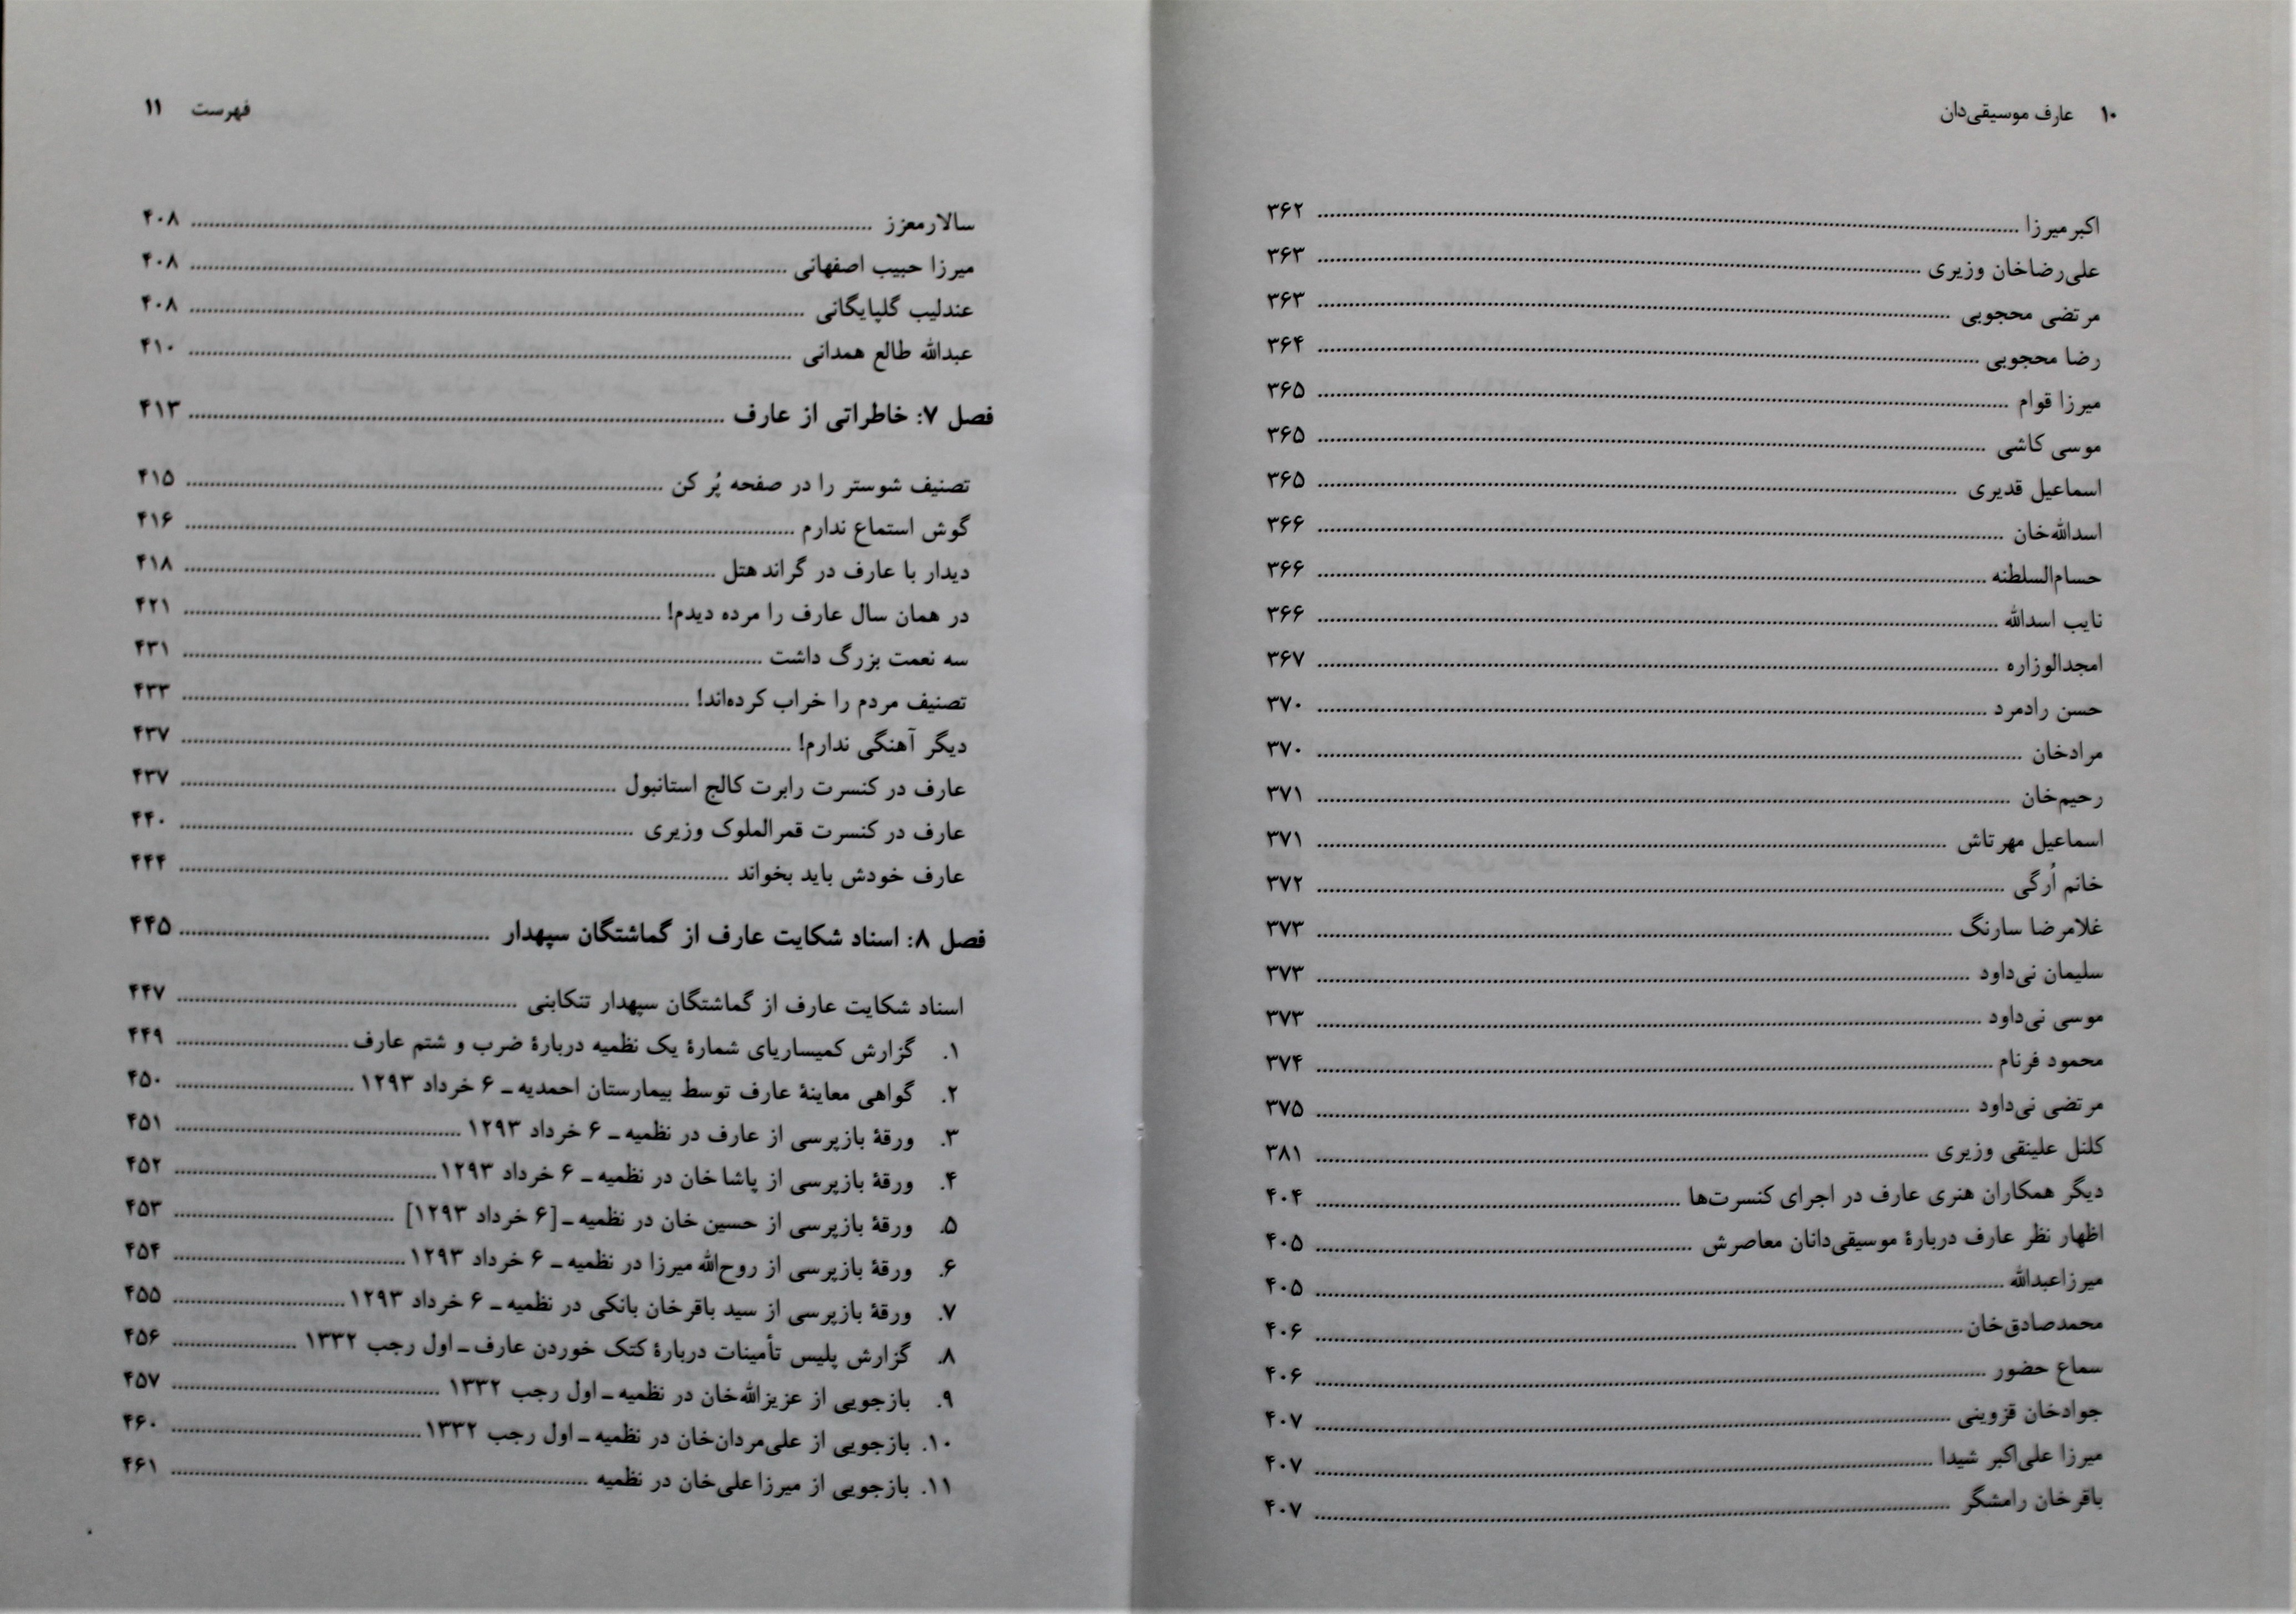 ۱۰ عارف موسیقی‌دان
اکبرمیرزا ........ ۳۶۲
علی‌رضاخان وزیری ........ ۳۶۳
مرتضی محجوبی ........ ۳۶۳
رضا محجوبی ........ ۳۶۴
میرزا قوام ........ ۳۶۵
موسی کاشی ........ ۳۶۵
اسماعیل قدیری ........ ۳۶۵
اسدالله‌خان ........ ۳۶۶
حسام‌السلطنه ........ ۳۶۶
نایب اسدالله ........ ۳۶۶
امجدالوزاره ........ ۳۶۷
حسن رادمرد ........ ۳۷۰
مرادخان ........ ۳۷۰
رحیم‌خان ........ ۳۷۱
اسماعیل مهرتاش ........ ۳۷۱
خانم اُرگی ........ ۳۷۲
غلامرضا سارنگ ........ ۳۷۳
سلیمان نی‌داود ........ ۳۷۳
موسی نی‌داود ........ ۳۷۳
محمود فرنام ........ ۳۷۴
مرتضی نی‌داود ........ ۳۷۵
کلنل علینقی وزیری ........ ۳۸۱
دیگر همکاران هنری عارف در اجرای کنسرت‌ها ........ ۴۰۴
اظهار نظر عارف دربارهٔ موسیقی‌دانان معاصرش ........ ۴۰۵
میرزاعبدالله ........ ۴۰۵
محمدصادق‌خان ........ ۴۰۶
سماع حضور ........ ۴۰۶
جوادخان قزوینی ........ ۴۰۷
میرزا علی‌اکبر شیدا ........ ۴۰۷
باقرخان رامشگر ........ ۴۰۷
فهرست ۱۱
سالارمعزز ........ ۴۰۸
میرزا حبیب اصفهانی ........ ۴۰۸
عندلیب گلپایگانی ........ ۴۰۸
عبدالله طالع همدانی ........ ۴۱۰
فصل ۷: خاطراتی از عارف ........ ۴۱۳
تصنیف شوستر را در صفحه پُر کن ........ ۴۱۵
گوش استماع ندارم ........ ۴۱۶
دیدار با عارف در گراند هتل ........ ۴۱۸
در همان سال عارف را مرده دیدم! ........ ۴۲۱
سه نعمت بزرگ داشت ........ ۴۳۱
تصنیف مردم را خراب کرده‌اند! ........ ۴۳۳
دیگر آهنگی ندارم! ........ ۴۳۷
عارف در کنسرت رابرت کالج استانبول ........ ۴۳۷
عارف در کنسرت قمرالملوک وزیری ........ ۴۴۰
عارف خودش باید بخواند ........ ۴۴۴
فصل ۸: اسناد شکایت عارف از گماشتگان سپهدار ........ ۴۴۵
اسناد شکایت عارف از گماشتگان سپهدار تنکابنی ........ ۴۴۷
۱. گزارش کمیساریای شمارهٔ یک نظمیه دربارهٔ ضرب و شتم عارف ........ ۴۴۹
۲. گواهی معاینهٔ عارف توسط بیمارستان احمدیه ـ ۶ خرداد ۱۲۹۳ ........ ۴۵۰
۳. ورقهٔ بازپرسی از عارف در نظمیه ـ ۶ خرداد ۱۲۹۳ ........ ۴۵۱
۴. ورقهٔ بازپرسی از پاشا خان در نظمیه ـ ۶ خرداد ۱۲۹۳ ........ ۴۵۲
۵. ورقهٔ بازپرسی از حسین خان در نظمیه ـ [۶ خرداد ۱۲۹۳] ........ ۴۵۳
۶. ورقهٔ بازپرسی از روح‌الله میرزا در نظمیه ـ ۶ خرداد ۱۲۹۳ ........ ۴۵۴
۷. ورقهٔ بازپرسی از سید باقرخان بانکی در نظمیه ـ ۶ خرداد ۱۲۹۳ ........ ۴۵۵
۸. گزارش پلیس تأمینات دربارهٔ کتک خوردن عارف ـ اول رجب ۱۳۳۲ ........ ۴۵۶
۹. بازجویی از عزیزالله‌خان در نظمیه ـ اول رجب ۱۳۳۲ ........ ۴۵۷
۱۰. بازجویی از علی‌مردان‌خان در نظمیه ـ اول رجب ۱۳۳۲ ........ ۴۶۰
۱۱. بازجویی از میرزا علی‌خان در نظمیه ........ ۴۶۱